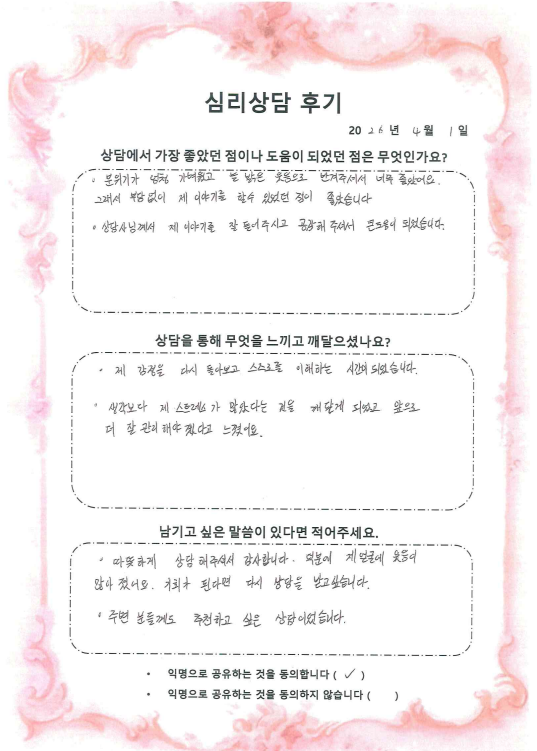 심리상담 후기
2026년 4월 1일
상담에서 가장 좋았던 점이나 도움이 되었던 점은 무엇인가요?
• 분위기가 엄청 가벼웠고 늘 밝은 웃음으로 반겨주셔서 너무 좋았어요.
그래서 부담없이 제 이야기를 할수 있었던 점이 좋았습니다
• 상담사님께서 제 이야기를 잘 들어주시고 공감해 주셔서 큰도움이 되었습니다.
상담을 통해 무엇을 느끼고 깨달으셨나요?
• 제 감정을 다시 돌아보고 스스로를 이해하는 시간이 되었습니다.
• 생각보다 제 스트레스가 많았다는 것을 깨닫게 되었고 앞으로
더 잘 관리해야 겠다고 느꼈어요.
남기고 싶은 말씀이 있다면 적어주세요.
• 따뜻하게 상담 해주셔서 감사합니다. 덕분에 제 얼굴에 웃음이
많아 졌어요. 기회가 된다면 다시 상담을 받고싶습니다.
• 주변 분들께도 추천하고 싶은 상담이었습니다.
• 익명으로 공유하는 것을 동의합니다 ( ✓ )
• 익명으로 공유하는 것을 동의하지 않습니다 ( )